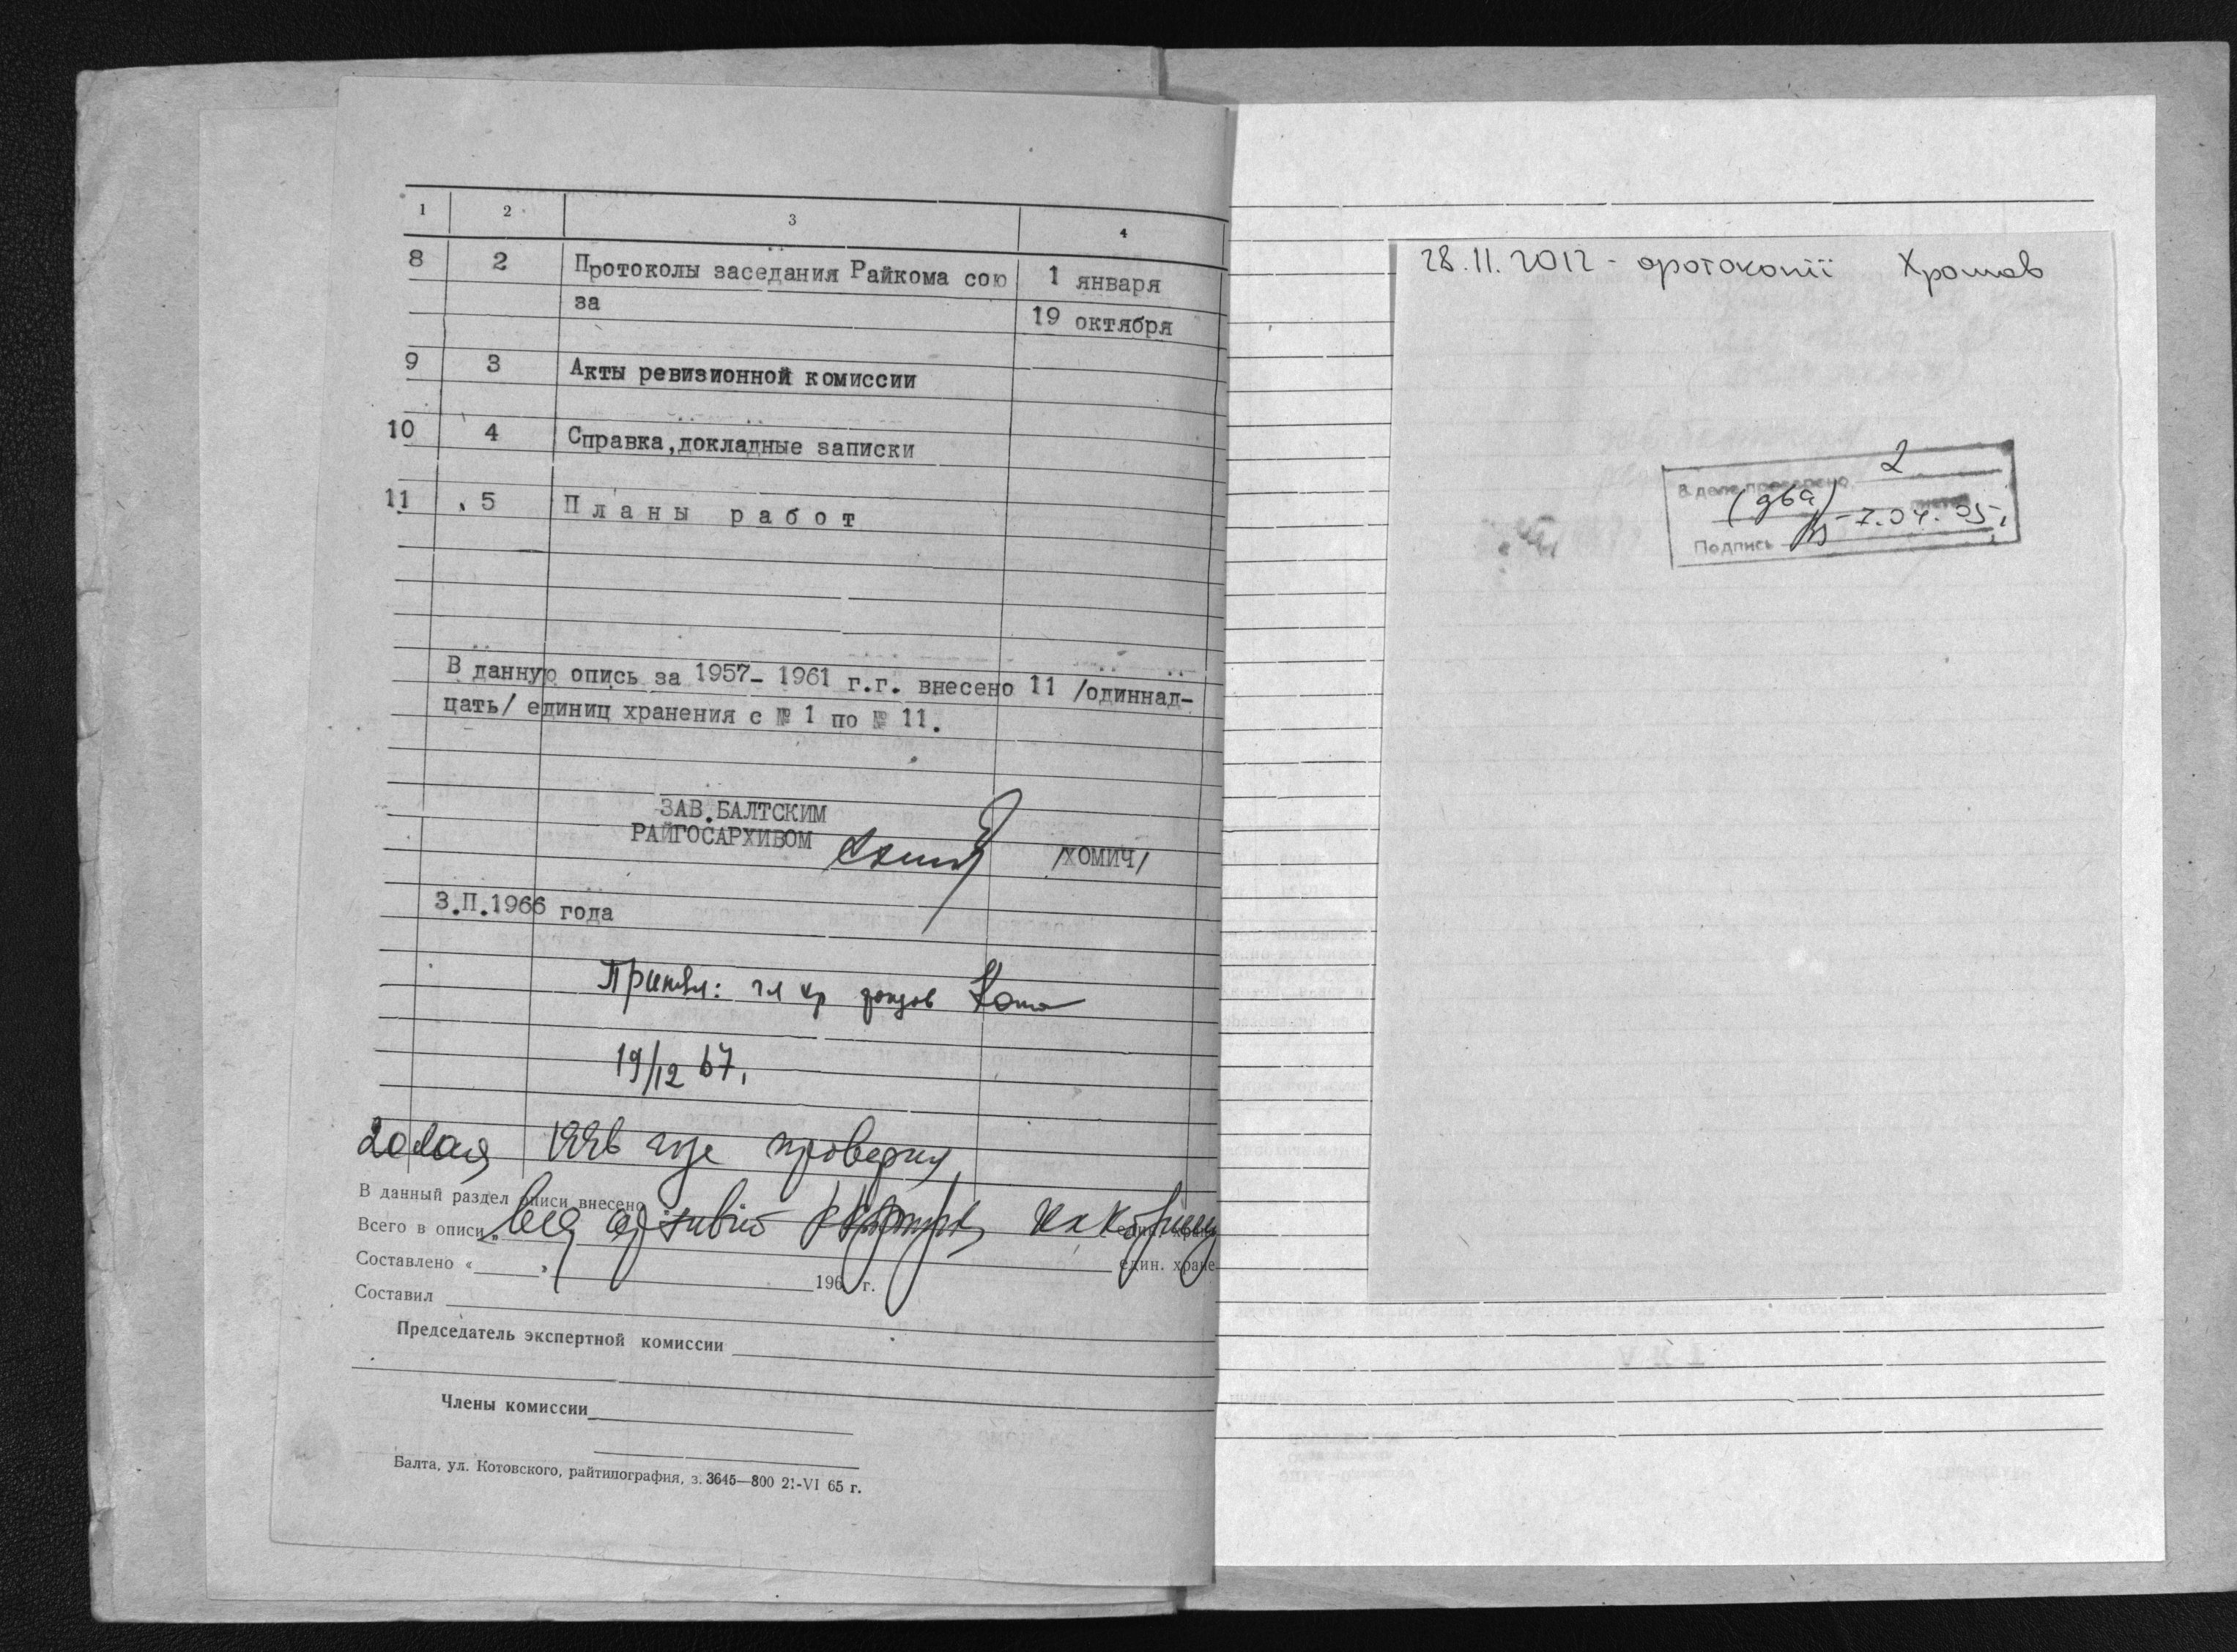 1 2 3 4
8 2 Протоколы заседания Райкома сою 1 января
за 19 октября
9 3 Акты ревизионной комиссии
10 4 Справка,докладные записки
11 5 Планы работ
В данную опись за 1957- 1961 г.г. внесено 11 /одиннад-
цать/ единиц хранения с № 1 по № 11.
ЗАВ.БАЛТСКИМ
РАЙГОСАРХИВОМ /ХОМИЧ/
3.II.1966 года
Принял: гл хр фондов
19/12 67.
1996 году проверил
В данный раздел описи внесено
Всего в описи един. хране
Составлено « » 196 г.
Составил
Председатель экспертной комиссии
Члены комиссии
Балта, ул. Котовского, райтипография, з. 3645—800 21-VI 65 г.
28.11.2012 - фотокопії
В деле проверено 2
(два) листов
Подпись 7.04.05